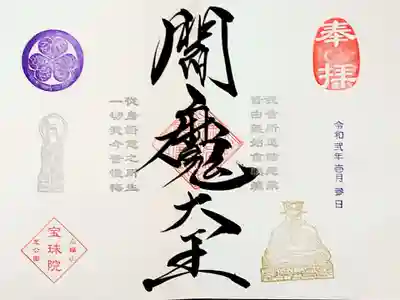 奉拝
令和弐年壱月參日
我昔所造諸悪業
皆由無始貪瞋癡
閻魔大王
從身語意之所生
一切我今皆懺悔
宝珠院
芝公園